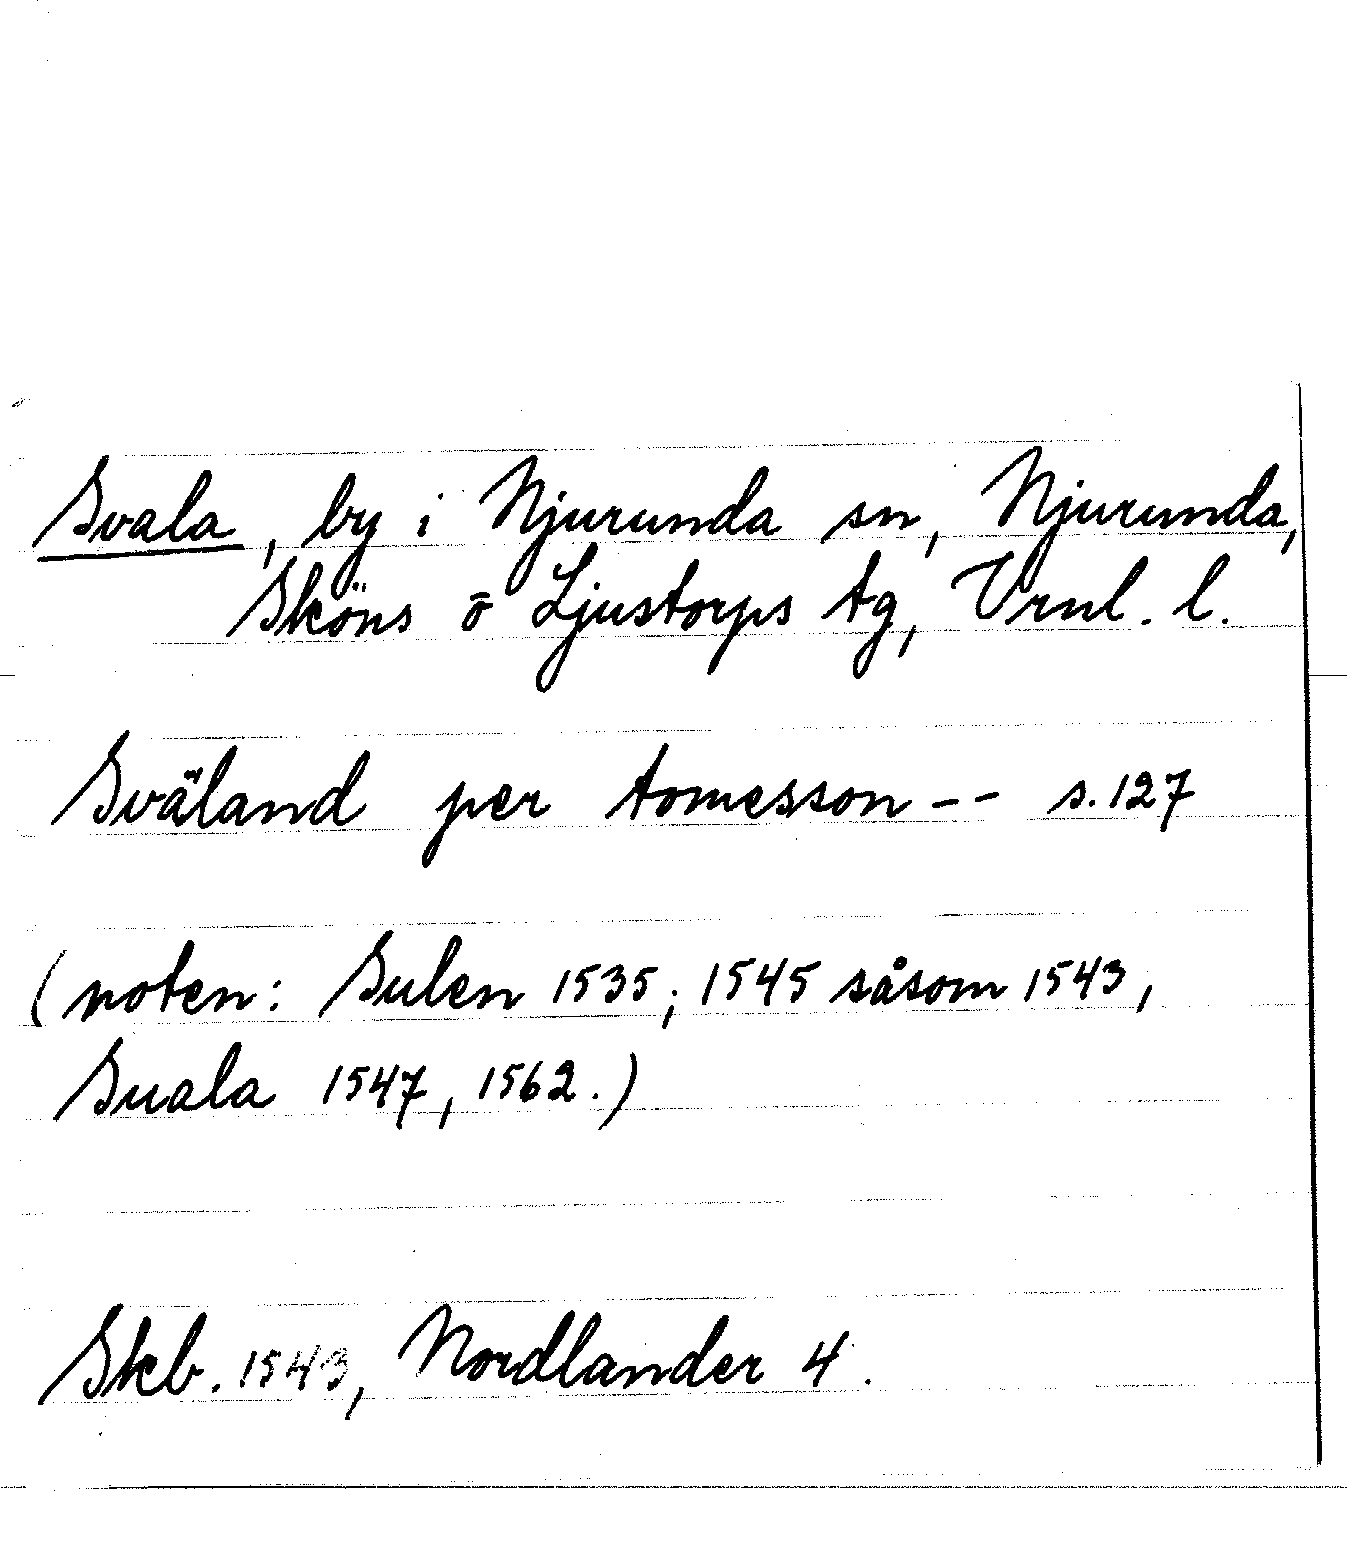 Svala, by i Njurunda sn, Njurunda,
Sköns o Ljustorps tg, Vrnl. l.
Sväland per tomesson -- s. 127
(noten: Sulen 1535; 1545 såsom 1543,
Suala 1547, 1562.)
Skb. 1543, Nordlander 4.